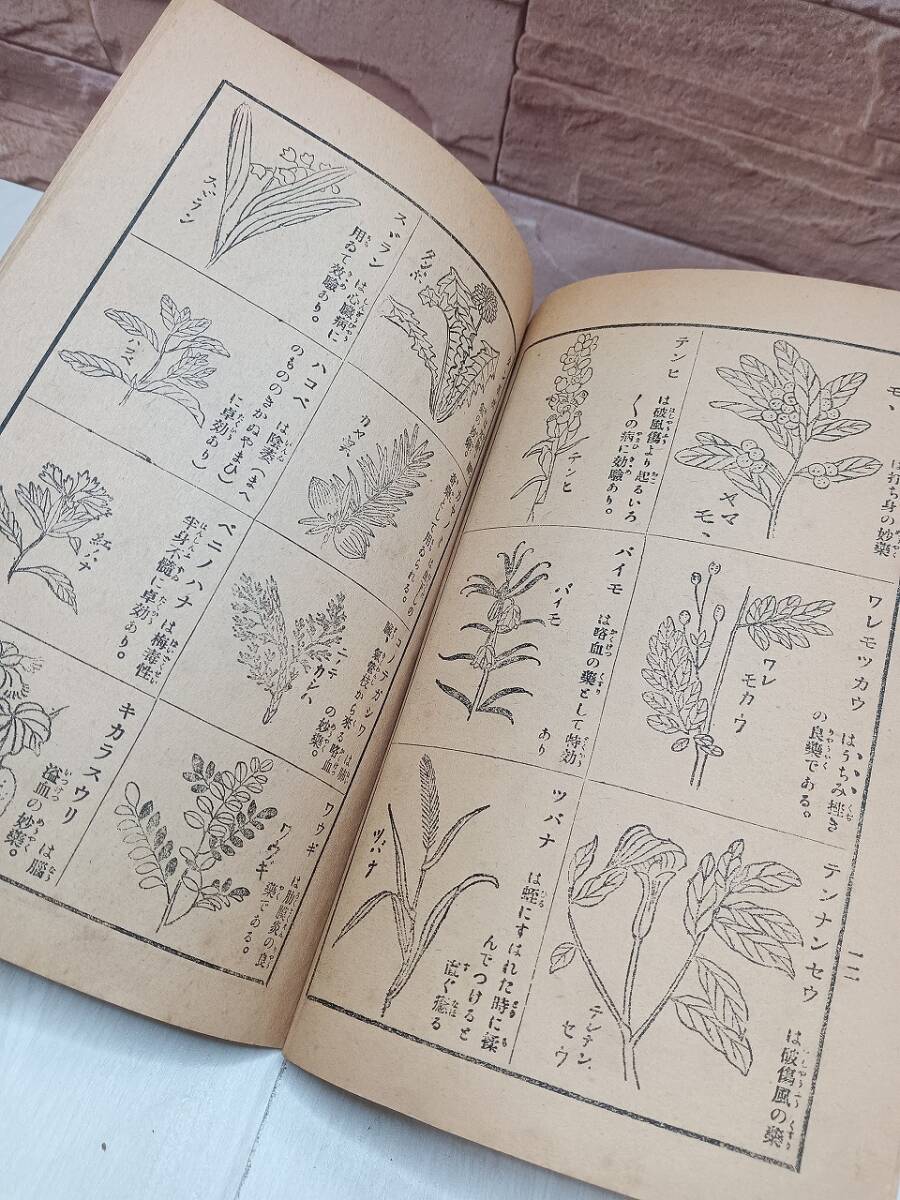 は打ち身の妙藥
テンヒ
は破風傷より起るいろ
〱の病に効驗あり。
テンヒ
ワレモツカウ
はうちみ挫き
の良藥である。
ワレ
モカウ
バイモ
は喀血の藥として特効
あり
バイモ
テンナンセウ
は破傷風の藥
セウ
ツバナ
は蛭にすはれた時に揉
んでつけると
直ぐ癒る
ツバナ
一二
カヤ
用ゐられる。
コノテガシワ
から來る喀血
の妙藥。
ワウギ
は肋膜炎の良
藥である。
ワウギ
スヾラン
は心臓病に
用ゐて效驗あり。
スヾラン
ハコベ
は陰萎(まへ
のもののきかぬやまひ
に卓効あり)
ハコベ
ベニノハナ
は梅毒性
半身不髓に卓効あり。
紅ノハナ
キカラスウリ
は腦
溢血の妙藥。